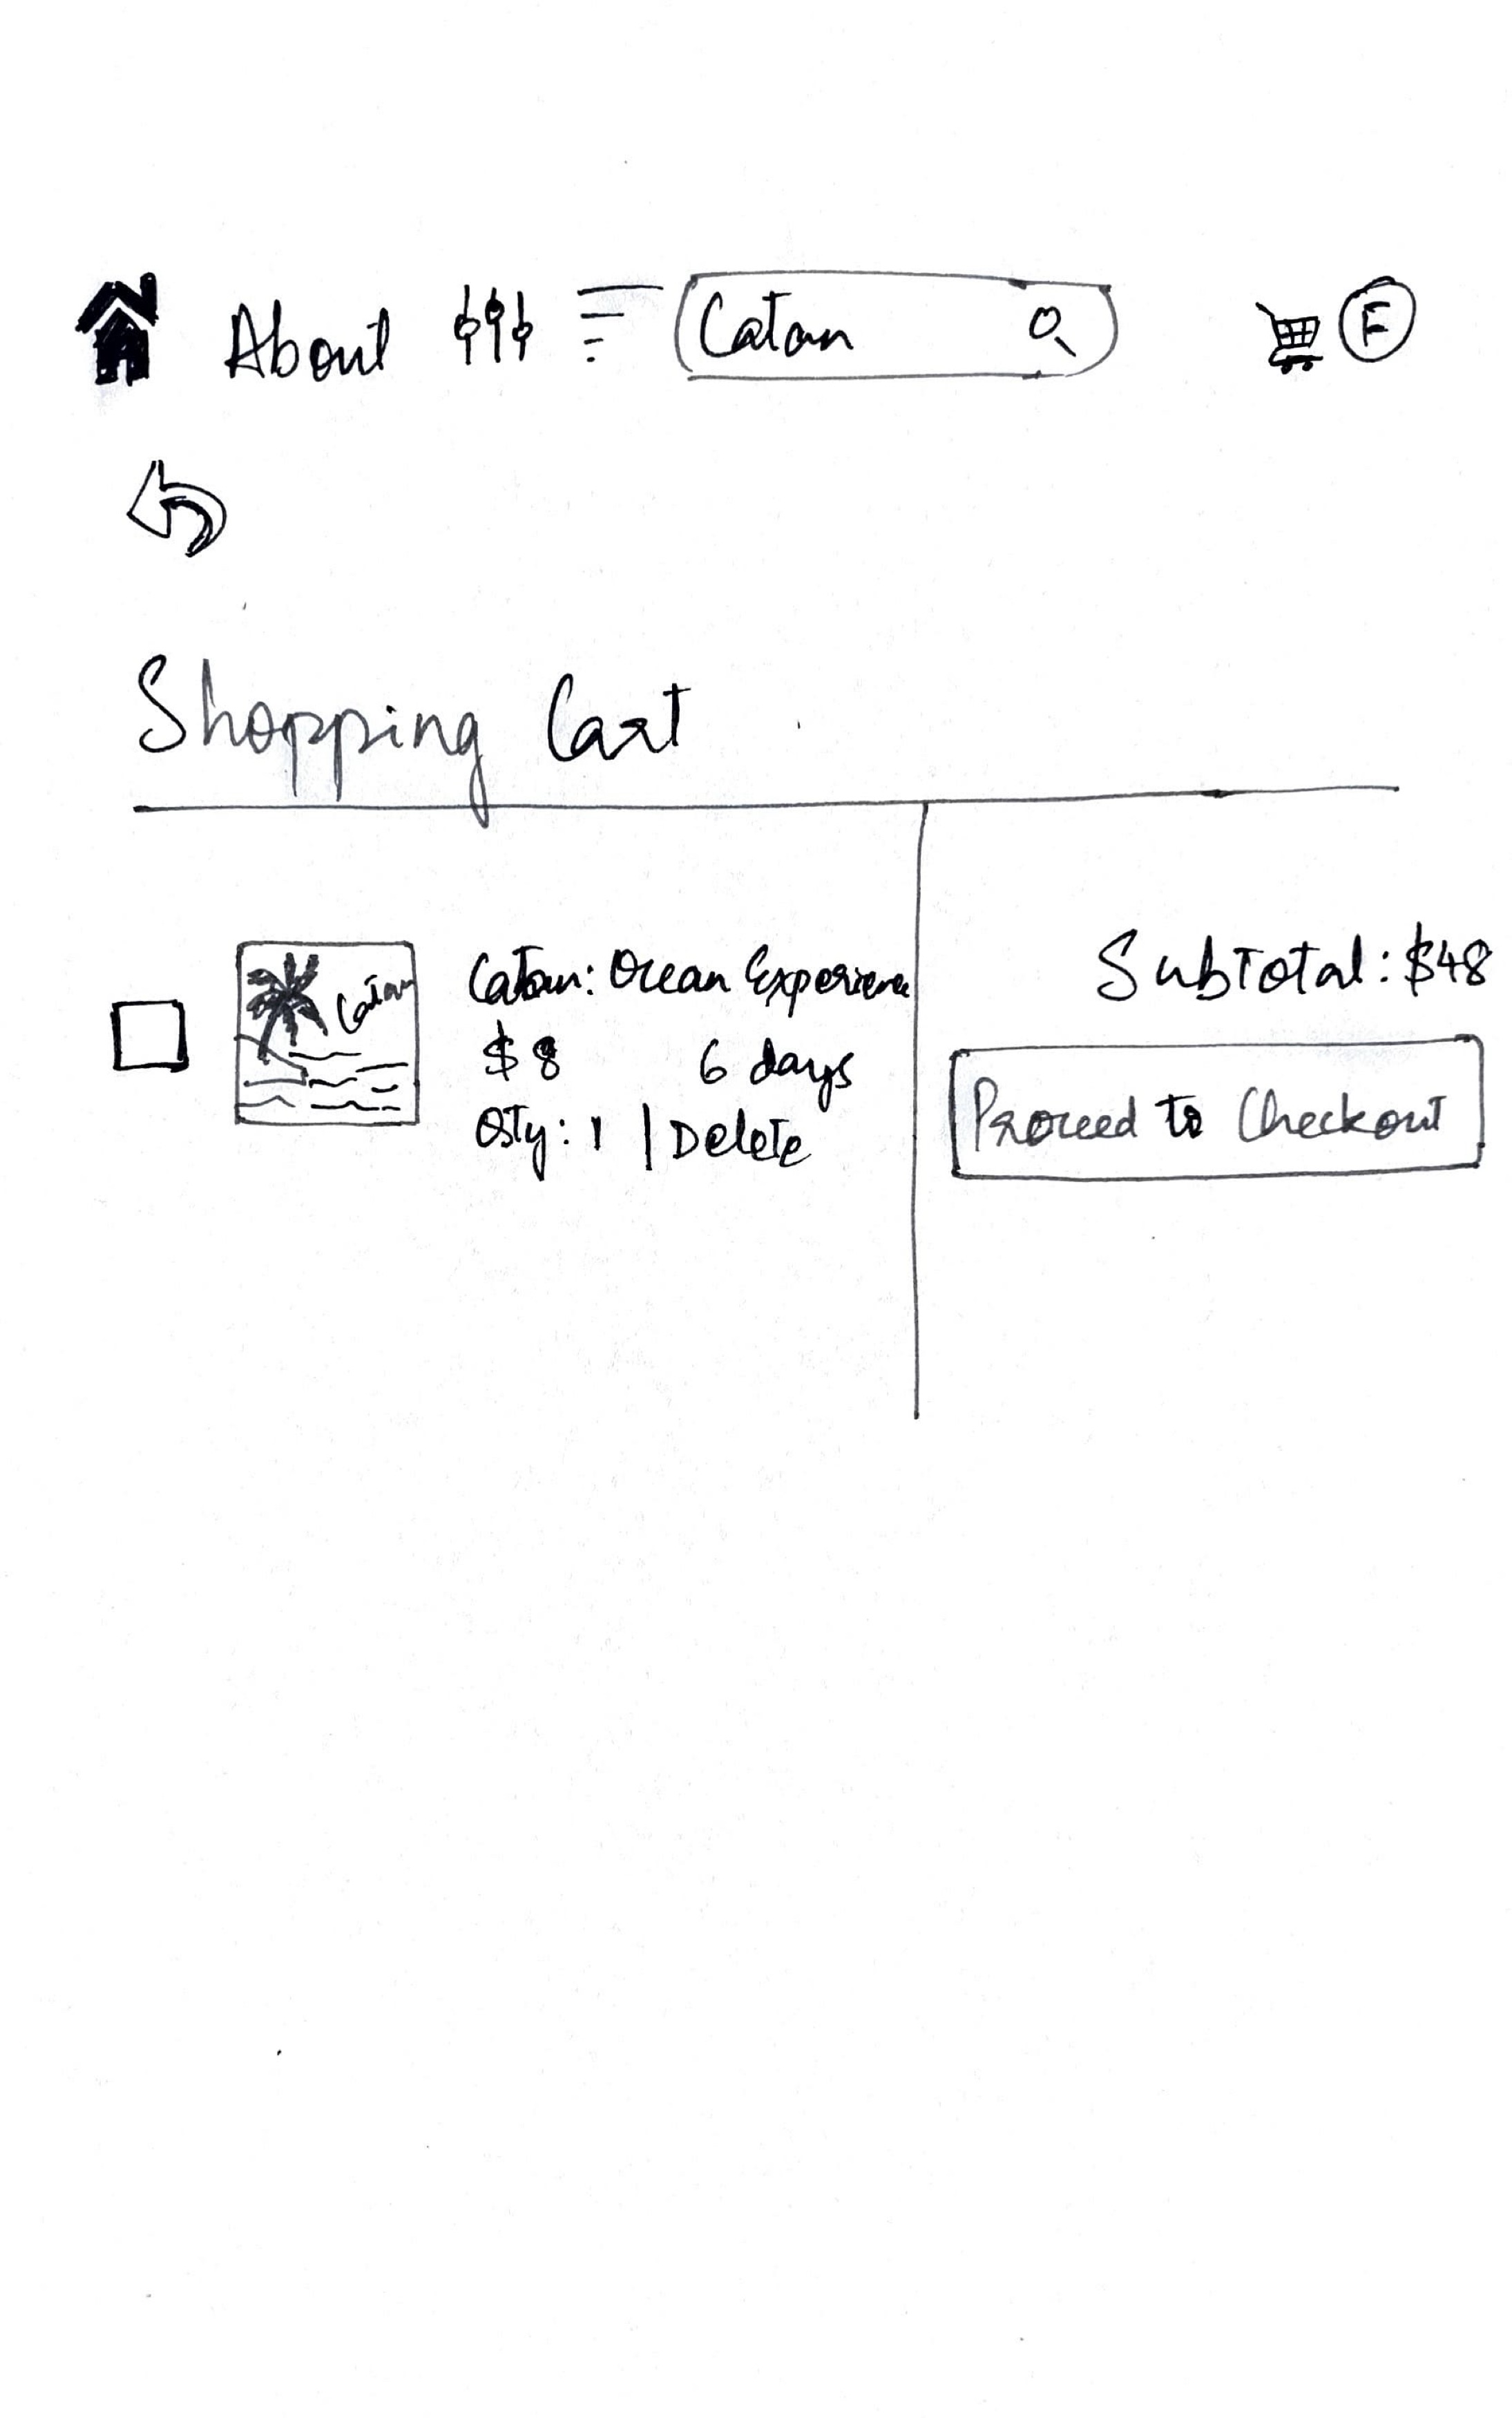 About Catan E
Shopping Cart
Catan
Catan: Ocean Experience
$8 6 days
Qty: 1 | Delete
Subtotal: $48
Proceed to Checkout